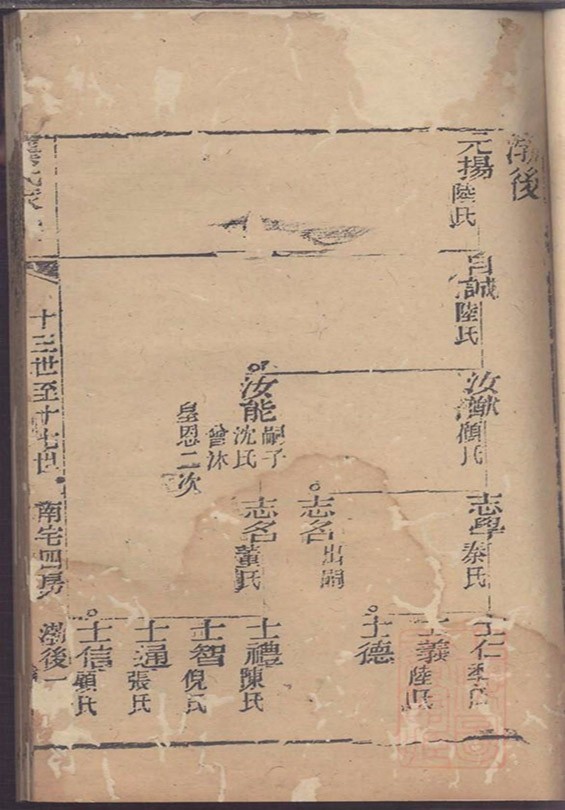 後
元揚 陸氏
誠 陸氏
汝猷 顧氏
汝能 嗣子
沈氏
曾沐
皇恩二次
志學 秦氏
志名 出嗣
志名 董氏
士仁 季氏
士義 陸氏
士德
士禮 陳氏
士智 倪氏
士通 張氏
士信 顧氏
氏家
十三世至十七世
南宅四房
後一